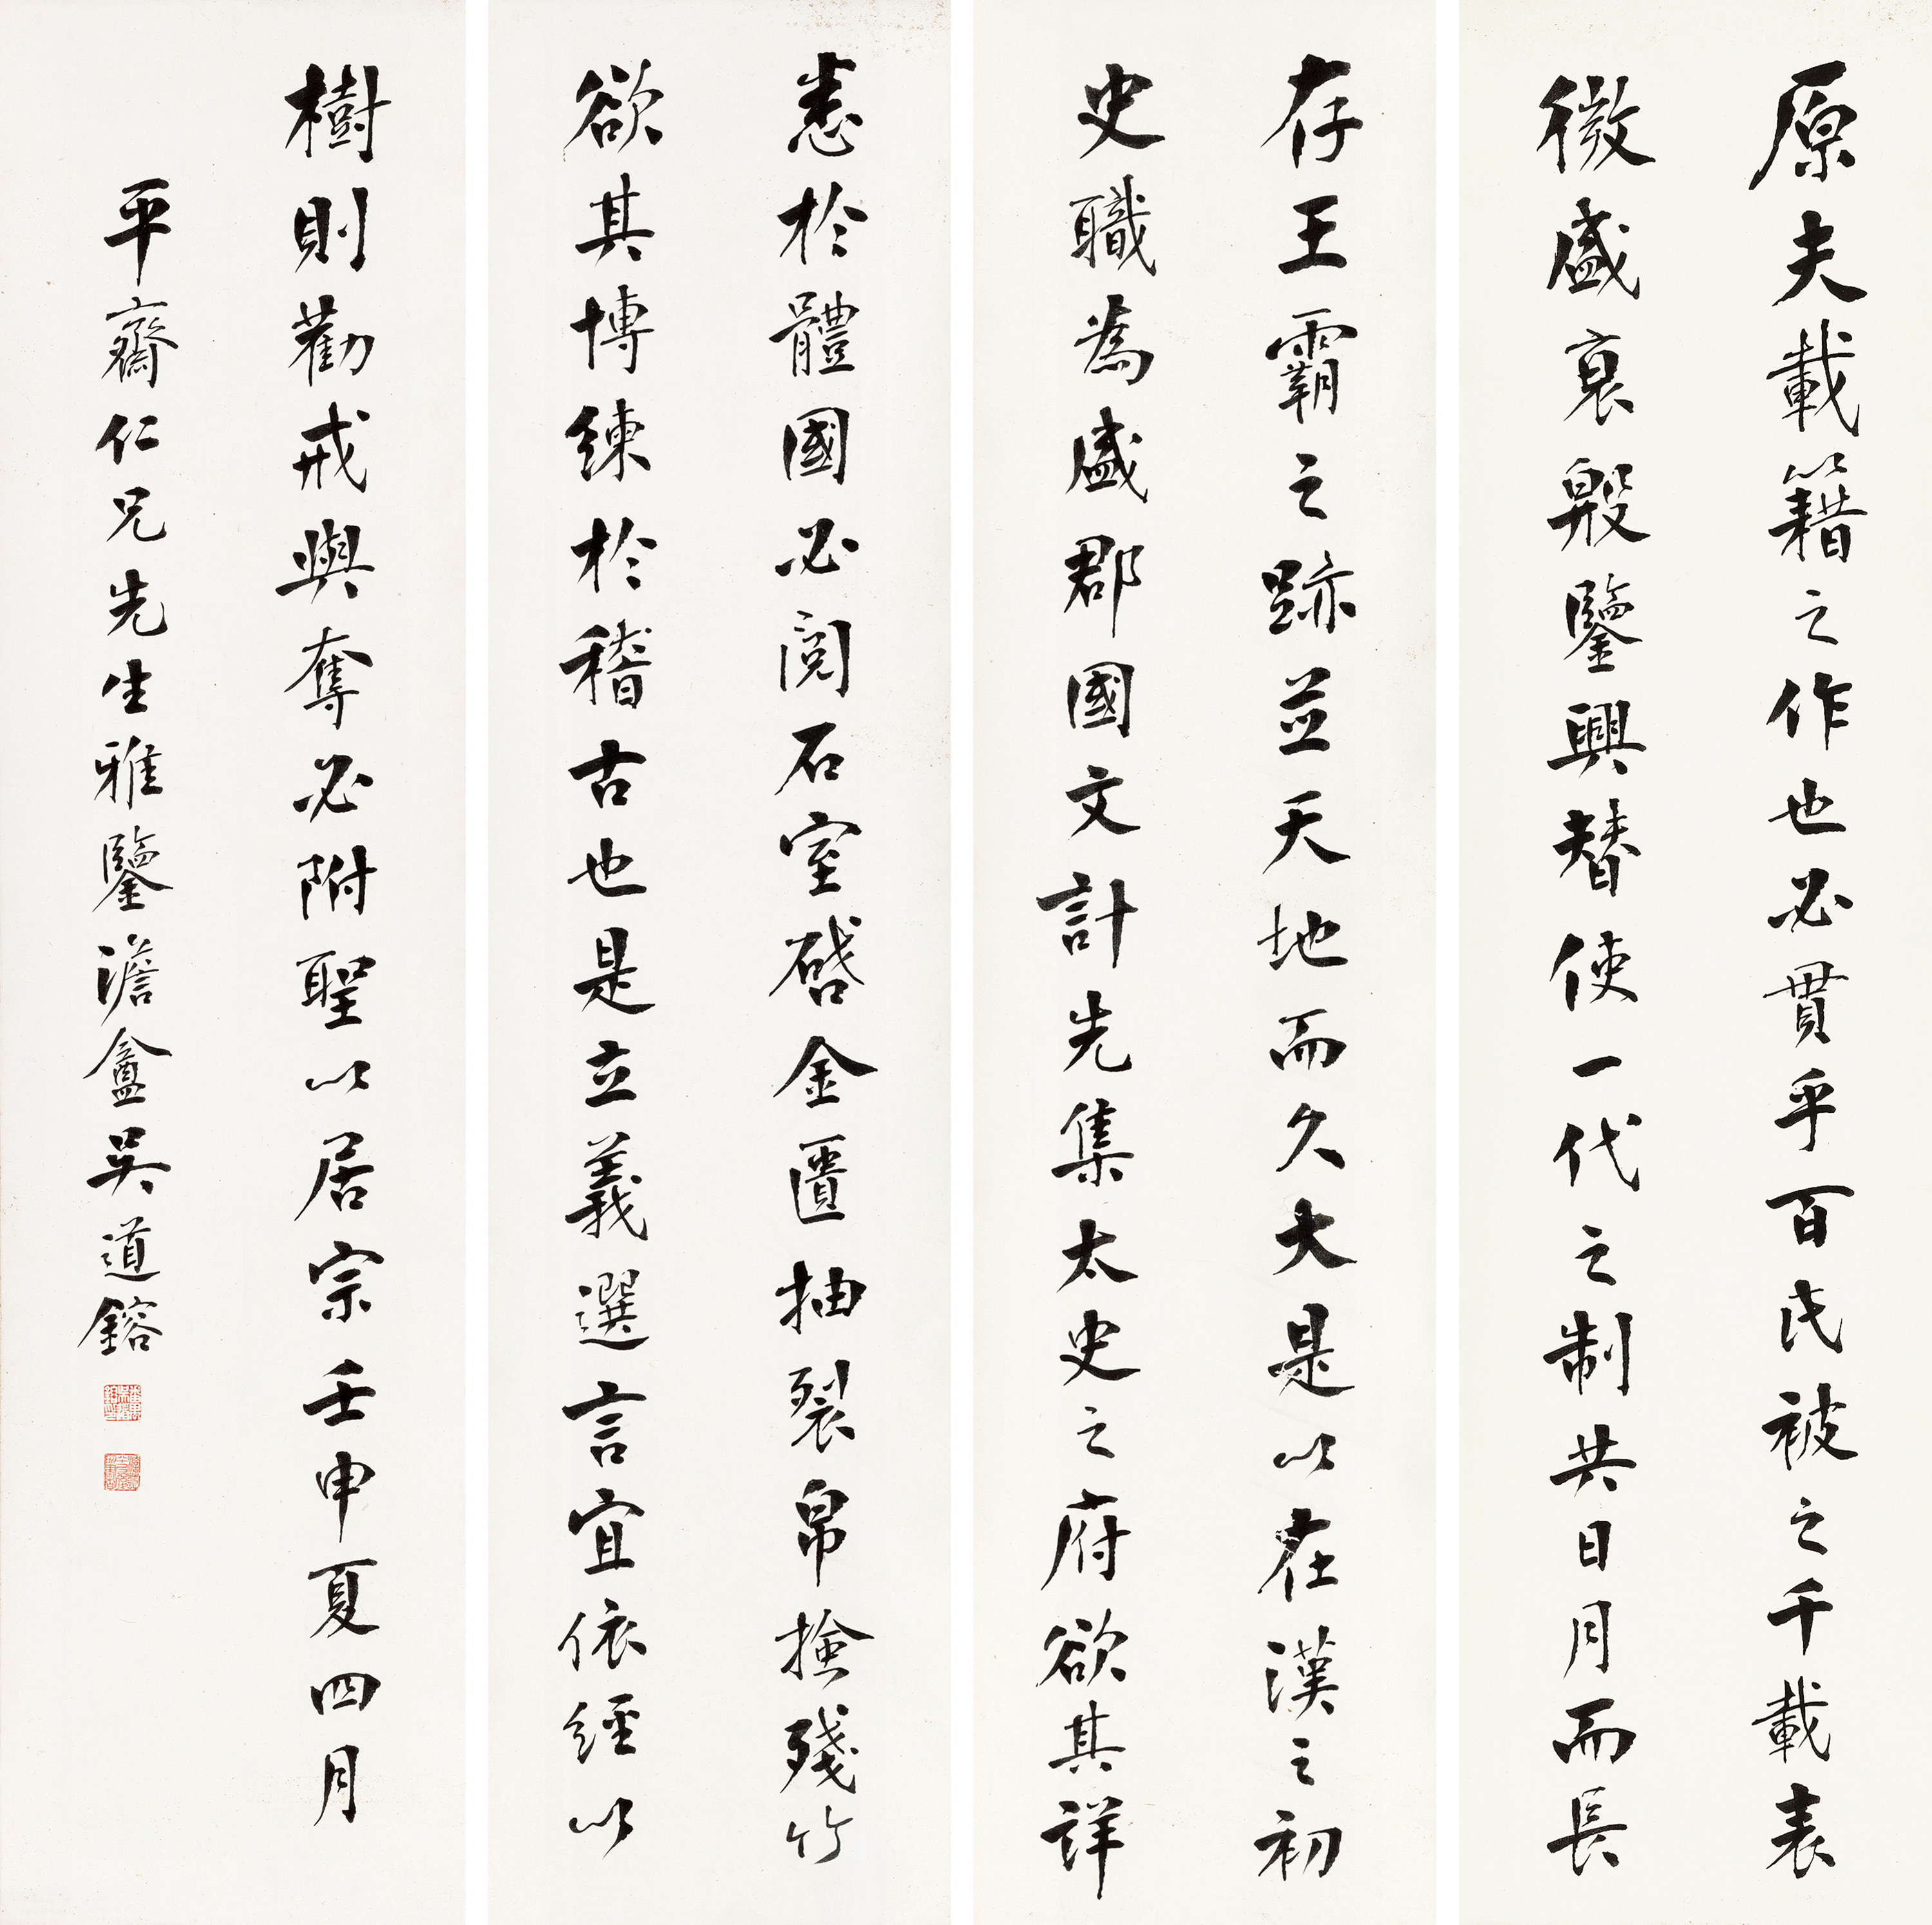 原夫載籍之作也必貫乎百氏被之千載表
徵盛衰殷鑒興替使一代之制共日月而長
存王霸之跡並天地而久大是以在漢之初
史職為盛郡國文計先集太史之府欲其詳
悉於體國必閱石室啓金匱抽裂帛撿殘竹
欲其博練於稽古也是立義選言宜依經以
樹則勸戒與奪必附聖以居宗壬申夏四月
平齋仁兄先生雅鑒澹盦吳道鎔